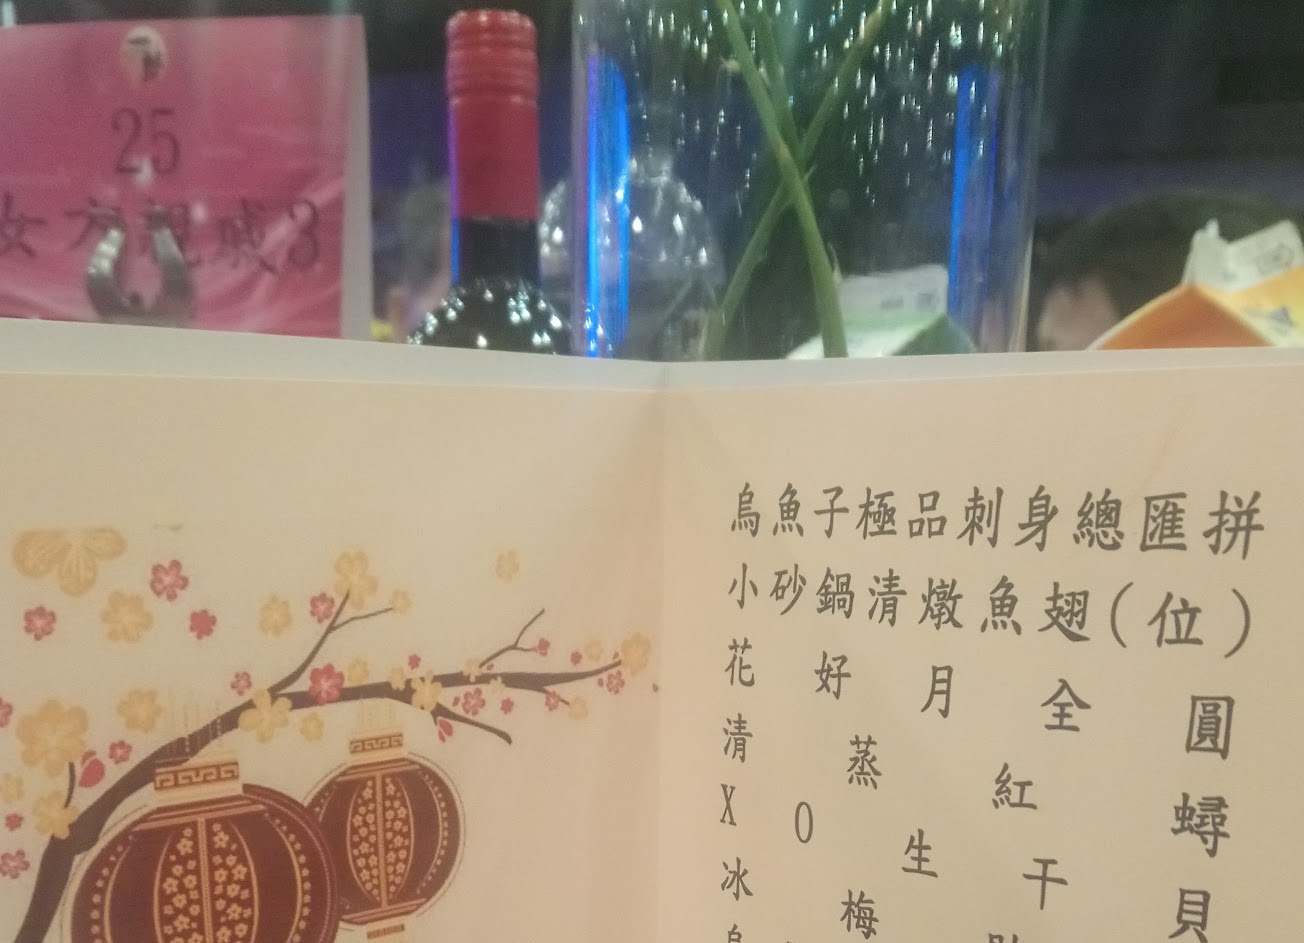 25
女方親戚3
烏魚子極品刺身總匯拼
小砂鍋清燉魚翅(位)
花 好 月 全 圓
清 蒸 紅 蟳
X O 生 干 貝
冰 梅